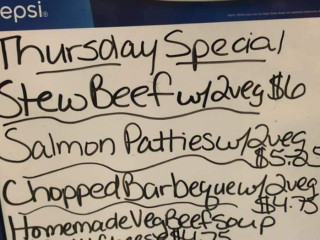 epsi
Thursday Special
Stew Beef w/2veg $6
Salmon Patties w/2veg
$5.25
Chopped Barbeque w/2veg
$4.75
Homemade Veg Beef Soup
cheese $4.75